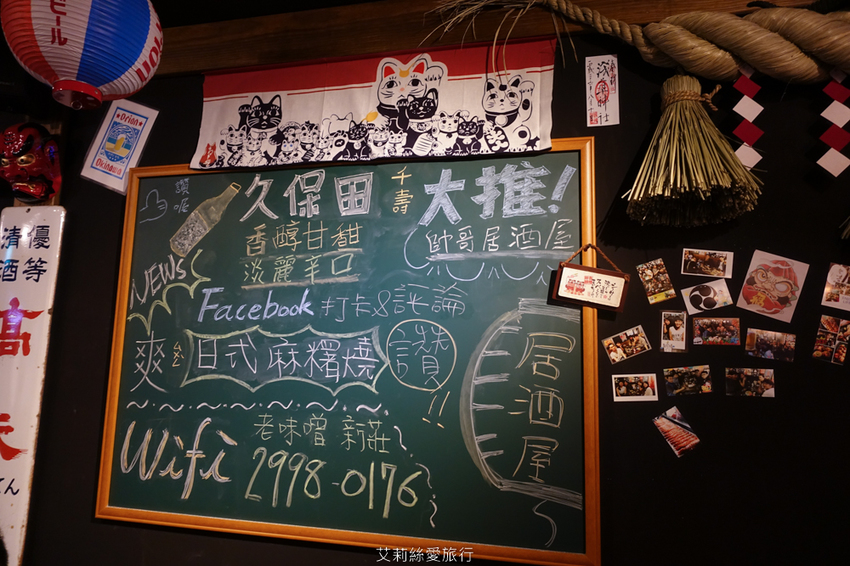 ビール
Orion
Okinawa
讚喔
久保田 千壽 大推!
香醇甘甜
淡麗辛口
(帥哥居酒屋
NEWS
Facebook 打卡&評論
爽 日式麻糬燒 讚!!
居酒屋
Wifi 老味噌 新莊
2998-0176
清酒
優等
艾莉絲愛旅行